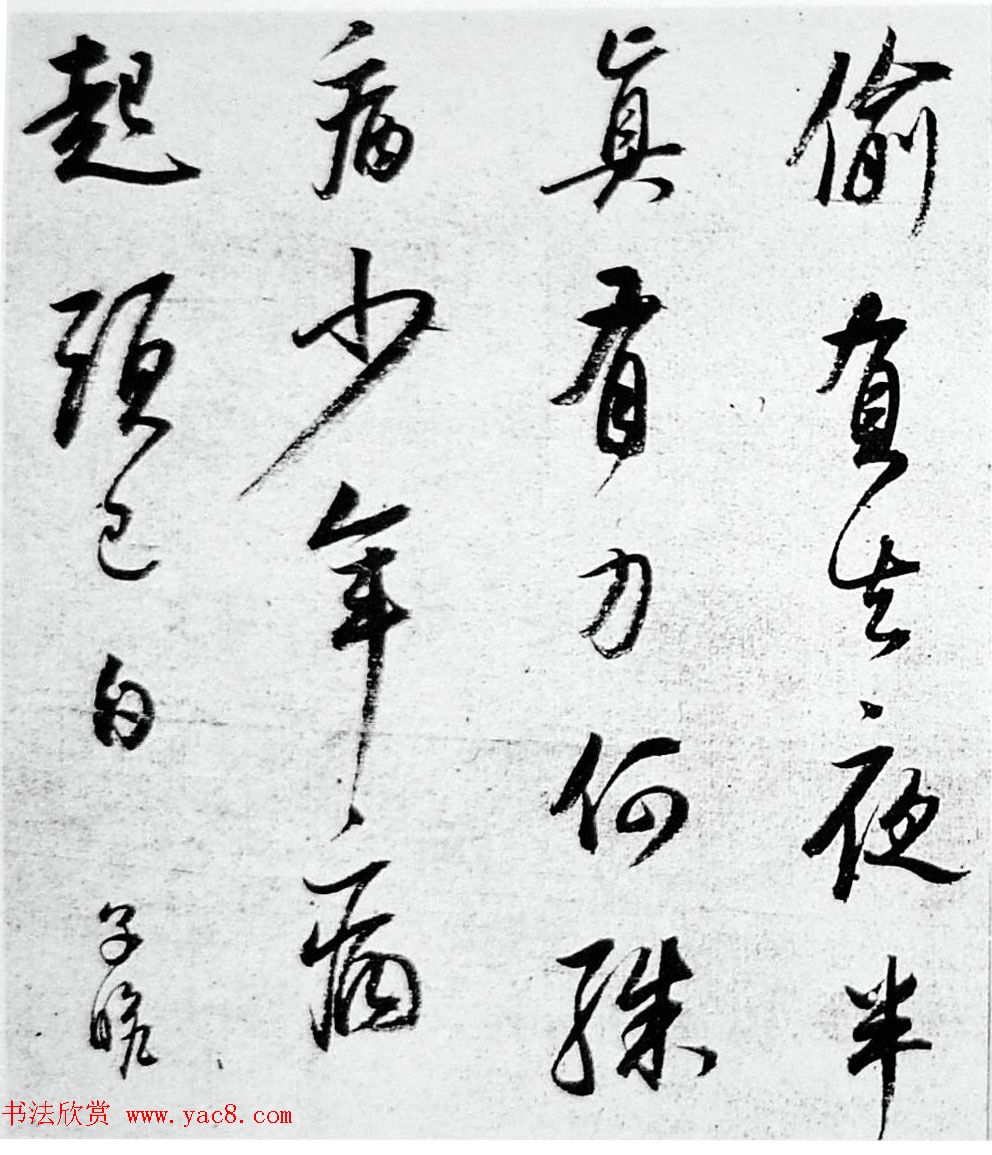 偷負去夜半
真有力何殊
病少年病
起頭已白
子瞻
书法欣赏 www.yac8.com